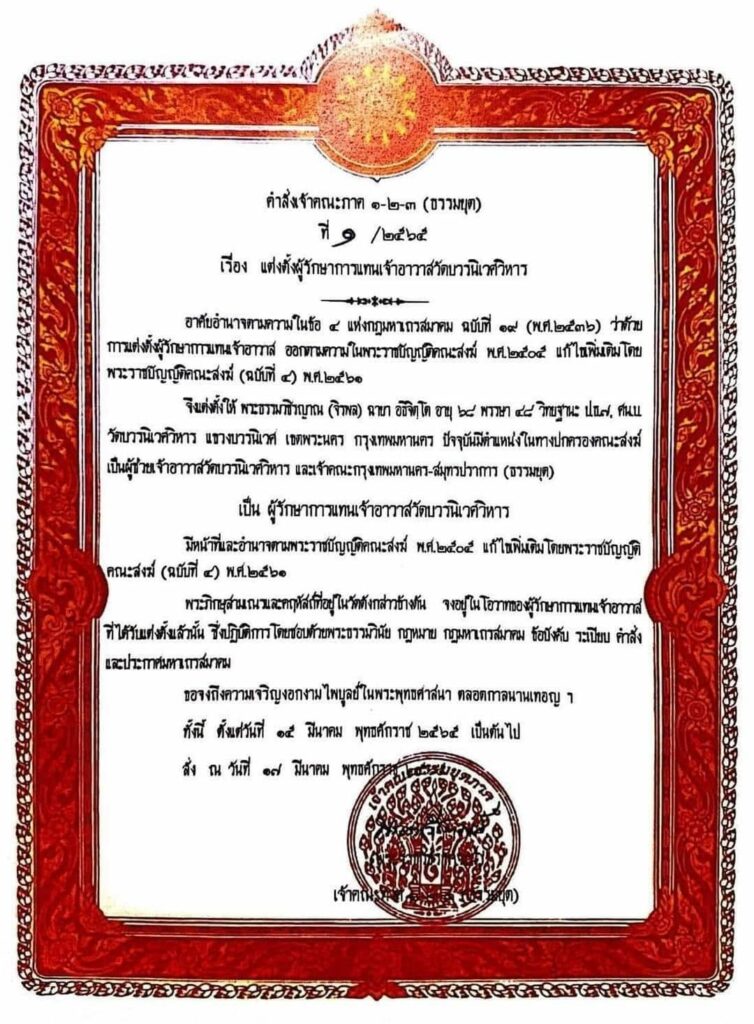 คำสั่งเจ้าคณะภาค ๑-๒-๓ (ธรรมยุต)
ที่ ๑ /๒๕๖๕
เรื่อง แต่งตั้งผู้รักษาการแทนเจ้าอาวาสวัดบวรนิเวศวิหาร
อาศัยอำนาจตามความในข้อ ๔ แห่งกฎมหาเถรสมาคม ฉบับที่ ๑๙ (พ.ศ.๒๕๓๖) ว่าด้วย
การแต่งตั้งผู้รักษาการแทนเจ้าอาวาส ออกตามความในพระราชบัญญัติคณะสงฆ์ พ.ศ.๒๕๐๕ แก้ไขเพิ่มเติมโดย
พระราชบัญญัติคณะสงฆ์ (ฉบับที่ ๔) พ.ศ.๒๕๖๑
จึงแต่งตั้งให้ พระธรรมวชิรญาณ (จิรพล) ฉายา อธิจิตฺโต อายุ ๖๘ พรรษา ๔๘ วิทยฐานะ ปธ.๗, ศน.บ.
วัดบวรนิเวศวิหาร แขวงบวรนิเวศ เขตพระนคร กรุงเทพมหานคร ปัจจุบันมีตำแหน่งในทางปกครองคณะสงฆ์
เป็นผู้ช่วยเจ้าอาวาสวัดบวรนิเวศวิหาร และเจ้าคณะกรุงเทพมหานคร-สมุทรปราการ (ธรรมยุต)
เป็น ผู้รักษาการแทนเจ้าอาวาสวัดบวรนิเวศวิหาร
มีหน้าที่และอำนาจตามพระราชบัญญัติคณะสงฆ์ พ.ศ.๒๕๐๕ แก้ไขเพิ่มเติมโดยพระราชบัญญัติ
คณะสงฆ์ (ฉบับที่ ๔) พ.ศ.๒๕๖๑
พระภิกษุสามเณรและคฤหัสถ์ที่อยู่ในวัดดังกล่าวข้างต้น จงอยู่ในโอวาทของผู้รักษาการแทนเจ้าอาวาส
ที่ได้รับแต่งตั้งแล้วนั้น ซึ่งปฏิบัติการโดยชอบด้วยพระธรรมวินัย กฎหมาย กฎมหาเถรสมาคม ข้อบังคับ ระเบียบ คำสั่ง
และประกาศมหาเถรสมาคม
ขอจงถึงความเจริญงอกงามไพบูลย์ในพระพุทธศาสนา ตลอดกาลนานเทอญ ฯ
ทั้งนี้ ตั้งแต่วันที่ ๑๕ มีนาคม พุทธศักราช ๒๕๖๕ เป็นต้นไป
สั่ง ณ วันที่ ๑๗ มีนาคม พุทธศักราช
เจ้าคณะภาค (ธรรมยุต)